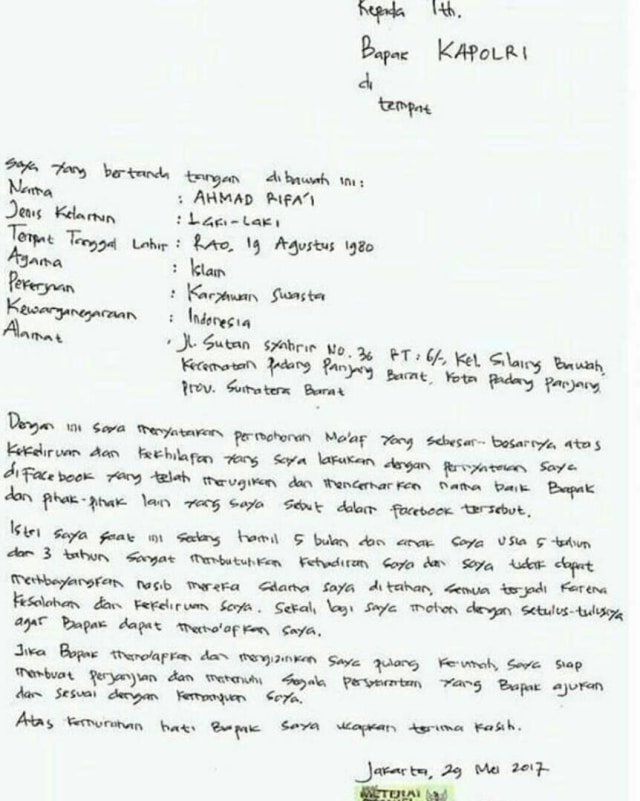 Kepada Yth.
Bapak KAPOLRI
di
tempat
Saya yang bertanda tangan dibawah ini:
Nama : AHMAD RIFA'I
Jenis Kelamin : LAKI-LAKI
Tempat Tanggal Lahir : RAO, 19 Agustus 1980
Agama : Islam
Pekerjaan : Karyawan Swasta
Kewarganegaraan : Indonesia
Alamat : Jl. Sutan Syahrir No. 36 RT: 6/-, Kel. Silaing Bawah,
Kecamatan Padang Panjang Barat, Kota Padang Panjang,
Prov. Sumatera Barat
Dengan ini saya menyatakan permohonan Ma'af yang sebesar-besarnya atas
Kekeliruan dan Kekhilafan yang saya lakukan dengan pernyataan saya
di Facebook yang telah merugikan dan mencemarkan nama baik Bapak
dan pihak-pihak lain yang saya sebut dalam facebook tersebut.
Istri saya saat ini sedang hamil 5 bulan dan anak saya usia 5 tahun
dan 3 tahun sangat membutuhkan kehadiran saya dan saya tidak dapat
membayangkan nasib mereka selama saya ditahan, semua terjadi karena
kesalahan dan kekeliruan saya. Sekali lagi saya mohon dengan setulus-tulusnya
agar Bapak dapat mema'afkan saya.
Jika Bapak mema'afkan dan mengizinkan saya pulang kerumah, saya siap
membuat perjanjian dan memenuhi segala persyaratan yang Bapak ajukan
dan sesuai dengan kemampuan saya.
Atas kemurahan hati Bapak saya ucapkan terima kasih.
Jakarta, 29 Mei 2017
METERAI